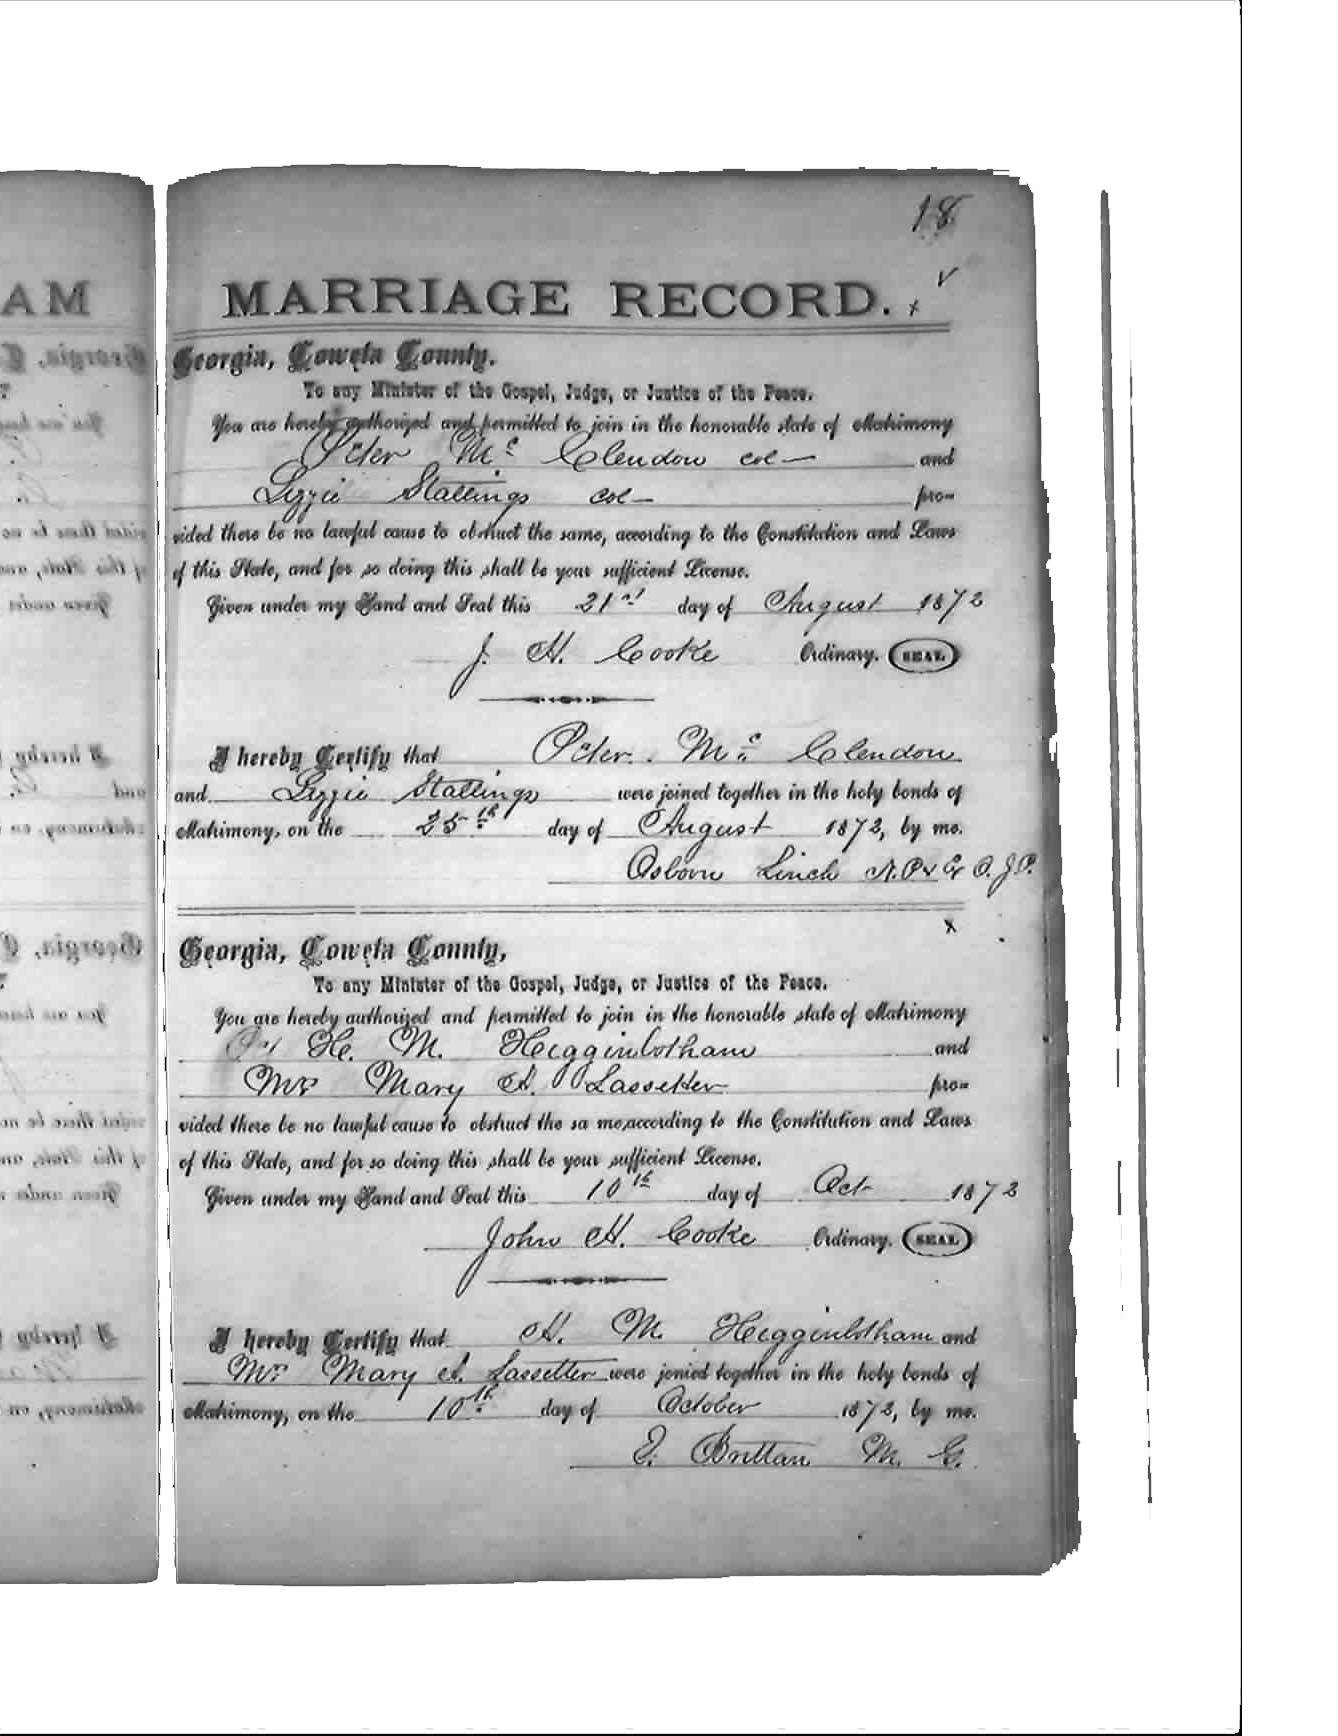 18
MARRIAGE RECORD.
Georgia, Coweta County.
To any Minister of the Gospel, Judge, or Justice of the Peace.
You are hereby authorized and permitted to join in the honorable state of Matrimony
Peter Mc Clendon col— and
Lizzie Stallings col— pro-
vided there be no lawful cause to obstruct the same, according to the Constitution and Laws
of this State, and for so doing this shall be your sufficient License.
Given under my Hand and Seal this 21st day of August 1872
J. H. Cooke Ordinary. SEAL
I hereby Certify that Peter Mc Clendon
and Lizzie Stallings were joined together in the holy bonds of
Matrimony, on the 25th day of August 1872, by me.
Osborn Linch N. P. & Ex O. J P.
Georgia, Coweta County,
To any Minister of the Gospel, Judge, or Justice of the Peace.
You are hereby authorized and permitted to join in the honorable state of Matrimony
H. M. Higginbotham and
Mrs Mary A. Lassetter pro-
vided there be no lawful cause to obstruct the sa me, according to the Constitution and Laws
of this State, and for so doing this shall be your sufficient License.
Given under my Hand and Seal this 10th day of Oct 1872
John H. Cooke Ordinary. SEAL
I hereby Certify that H. M. Higginbotham and
Mrs Mary A. Lassetter were jonied together in the holy bonds of
Matrimony, on the 10th day of October 1872, by me.
Brittan M. G.